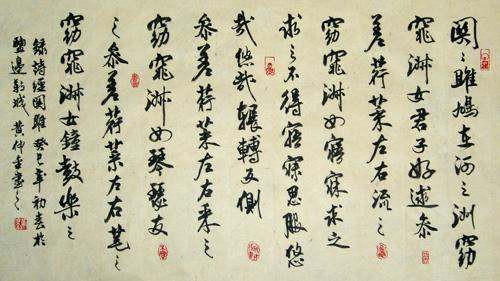 關〻雎鳩在河之洲窈
窕淑女君子好逑参
差荇菜左右流之
窈窕淑女寤寐求之
求之不得寤寐思服悠
哉悠哉輾轉反側
参差荇菜左右采之
窈窕淑女琴瑟友
之参差荇菜左右芼之
窈窕淑女鐘鼓樂之
錄詩經關雎癸巳年初春於
鹽邊新城黄仲書之